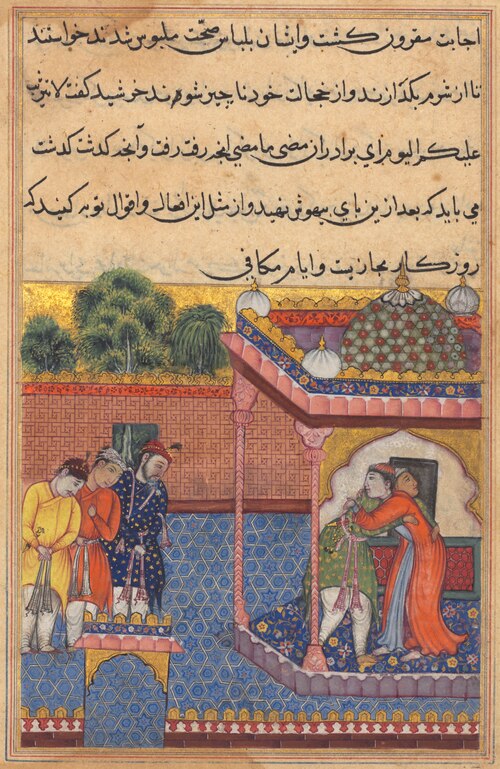 اجابت مقرون کشت و ایشان بلباس صحّت ملبوس شدند خواستند
تا از شرم بکدازند و از خجالت خود ناچیز شوند خرشید کفت لا تثریب
علیکم الیوم ای برادران مضی ما مضی انچه رفت رفت و آنچه کذشت کذشت
می باید که بعد ازین پای بیهوش نهید و از مثل این افعال و اقوال توبه کنید که
روزکار مجازیت و ایام مکافی